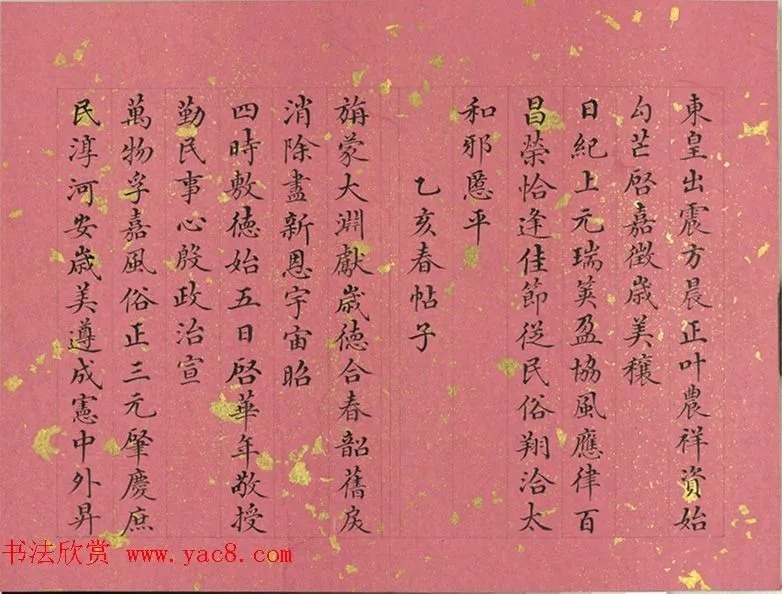 東皇出震方晨正叶農祥資始
勾芒啓嘉徵歲美穰
日紀上元瑞莢盈協風應律百
昌榮恰逢佳節從民俗翔洽太
和邪慝平
乙亥春帖子
旃蒙大淵獻歲德合春韶舊戾
消除盡新恩宇宙昭
四時敷德始五日啓華年敬授
勤民事心殷政治宣
萬物孚嘉風俗正三元肇慶庶
民淳河安歲美遵成憲中外昇
书法欣赏 www.yac8.com